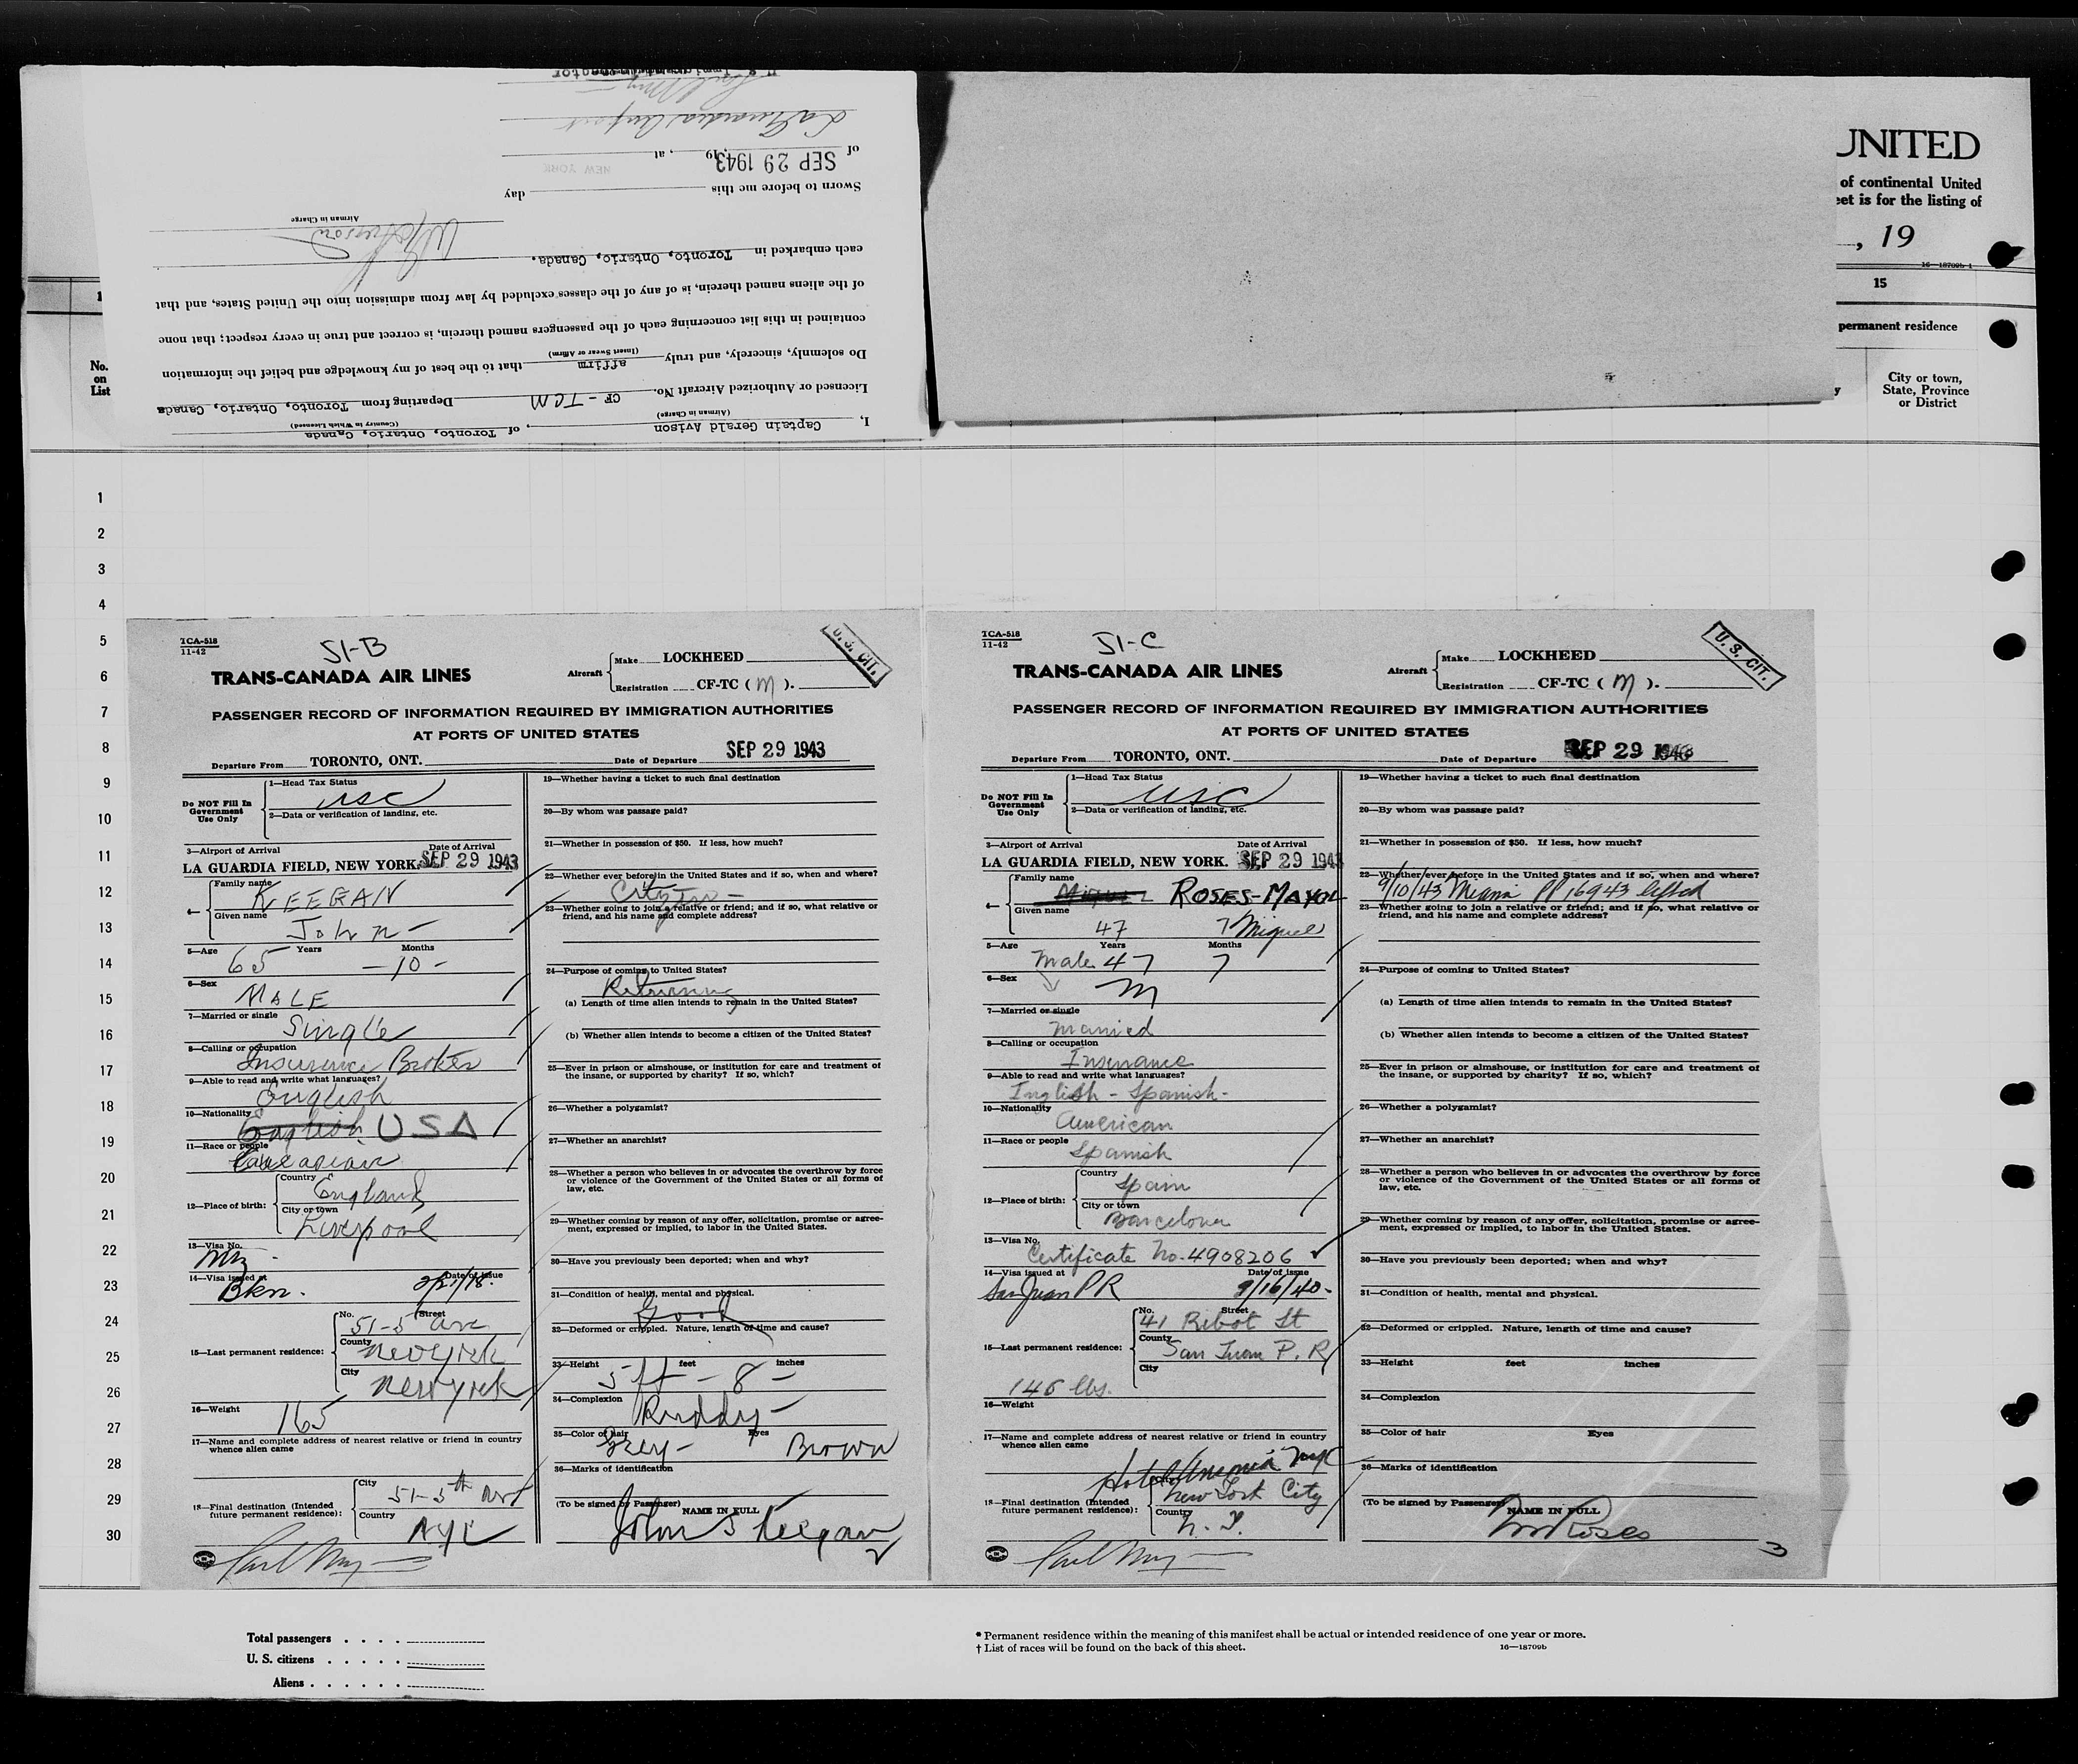 I, Captain Gerald Avison, of Toronto, Ontario, Canada
(Airman in Charge) (Country in Which Licensed)
Licensed or Authorized Aircraft No. CF-TCM Departing from Toronto, Ontario, Canada
Do solemnly, sincerely, and truly affirm that to the best of my knowledge and belief the information
(Insert Swear or Affirm)
contained in this list concerning each of the passengers named therein, is correct and true in every respect; that none
of the aliens named therein, is of any of the classes excluded by law from admission into the United States, and that
each embarked in Toronto, Ontario, Canada.
Airman in Charge
Sworn to before me this day
of SEP 29 1943, 19 , at NEW YORK
LaGuardia Airport
U S Immigrant Inspector
UNITED
of continental United
eet is for the listing of
, 19
16—18709b-1
15
permanent residence
City or town,
State, Province
or District
No.
on
List
1
2
3
4
5
6
7
8
9
10
11
12
13
14
15
16
17
18
19
20
21
22
23
24
25
26
27
28
29
30
TCA-518
11-42
51-B
U. S. CIT.
TRANS-CANADA AIR LINES
Aircraft Make LOCKHEED
Registration CF-TC ( M ).
PASSENGER RECORD OF INFORMATION REQUIRED BY IMMIGRATION AUTHORITIES
AT PORTS OF UNITED STATES
Departure From TORONTO, ONT. Date of Departure SEP 29 1943
Do NOT Fill In
Government
Use Only
1—Head Tax Status
USC
2—Data or verification of landing, etc.
3—Airport of Arrival Date of Arrival
LA GUARDIA FIELD, NEW YORK. SEP 29 1943
4— Family name
KEEGAN
Given name
John
5—Age Years Months
65 — 10 —
6—Sex
MALE
7—Married or single
Single
8—Calling or occupation
Insurance Broker
9—Able to read and write what languages?
English
10—Nationality
English USA
11—Race or people
12—Place of birth: Country
England
City or town
Liverpool
13—Visa No.
14—Visa issued at Date of issue
Bkn. 2/21/18.
15—Last permanent residence: No. Street
51-5 Ave
County
New York
City
New York
16—Weight
165
17—Name and complete address of nearest relative or friend in country
whence alien came
18—Final destination (Intended
future permanent residence):
City
51-5th Ave
Country
NYC
19—Whether having a ticket to such final destination
20—By whom was passage paid?
21—Whether in possession of $50. If less, how much?
22—Whether ever before in the United States and if so, when and where?
Citizen —
23—Whether going to join a relative or friend; and if so, what relative or
friend, and his name and complete address?
24—Purpose of coming to United States?
Returning
(a) Length of time alien intends to remain in the United States?
(b) Whether alien intends to become a citizen of the United States?
25—Ever in prison or almshouse, or institution for care and treatment of
the insane, or supported by charity? If so, which?
26—Whether a polygamist?
27—Whether an anarchist?
28—Whether a person who believes in or advocates the overthrow by force
or violence of the Government of the United States or all forms of
law, etc.
29—Whether coming by reason of any offer, solicitation, promise or agree-
ment, expressed or implied, to labor in the United States.
30—Have you previously been deported; when and why?
31—Condition of health, mental and physical.
Good
32—Deformed or crippled. Nature, length of time and cause?
33—Height feet inches
5 ft — 8 —
34—Complexion
Ruddy —
35—Color of hair Eyes
Grey — Brown
36—Marks of identification
(To be signed by Passenger) NAME IN FULL
John S Keegan
TCA-518
11-42
51-C
U. S. CIT.
TRANS-CANADA AIR LINES
Aircraft Make LOCKHEED
Registration CF-TC ( M ).
PASSENGER RECORD OF INFORMATION REQUIRED BY IMMIGRATION AUTHORITIES
AT PORTS OF UNITED STATES
Departure From TORONTO, ONT. Date of Departure SEP 29 1943
Do NOT Fill In
Government
Use Only
1—Head Tax Status
USC
2—Data or verification of landing, etc.
3—Airport of Arrival Date of Arrival
LA GUARDIA FIELD, NEW YORK. SEP 29 1943
4— Family name
ROSES-MAYOL
Given name
47 7 Miguel
5—Age Years Months
Male 47 7
6—Sex
M
7—Married or single
Married
8—Calling or occupation
Insurance
9—Able to read and write what languages?
English - Spanish -
10—Nationality
American
11—Race or people
Spanish
12—Place of birth: Country
Spain
City or town
Barcelona
13—Visa No.
Certificate No. 4908206
14—Visa issued at Date of issue
San Juan PR 9/16/40-
15—Last permanent residence: No. Street
41 Ribot St
County
San Juan P.R
City
146 lbs.
16—Weight
17—Name and complete address of nearest relative or friend in country
whence alien came
Hotel Ansonia NYC
18—Final destination (Intended
future permanent residence):
City
New York City
Country
N. Y.
19—Whether having a ticket to such final destination
20—By whom was passage paid?
21—Whether in possession of $50. If less, how much?
22—Whether ever before in the United States and if so, when and where?
9/10/43 Miami PP 16943 lifted
23—Whether going to join a relative or friend; and if so, what relative or
friend, and his name and complete address?
24—Purpose of coming to United States?
(a) Length of time alien intends to remain in the United States?
(b) Whether alien intends to become a citizen of the United States?
25—Ever in prison or almshouse, or institution for care and treatment of
the insane, or supported by charity? If so, which?
26—Whether a polygamist?
27—Whether an anarchist?
28—Whether a person who believes in or advocates the overthrow by force
or violence of the Government of the United States or all forms of
law, etc.
29—Whether coming by reason of any offer, solicitation, promise or agree-
ment, expressed or implied, to labor in the United States.
30—Have you previously been deported; when and why?
31—Condition of health, mental and physical.
32—Deformed or crippled. Nature, length of time and cause?
33—Height feet inches
34—Complexion
35—Color of hair Eyes
36—Marks of identification
(To be signed by Passenger) NAME IN FULL
M Roses
3
Total passengers . . . .
U. S. citizens . . . . .
Aliens . . . . . .
* Permanent residence within the meaning of this manifest shall be actual or intended residence of one year or more.
† List of races will be found on the back of this sheet. 16—18709b